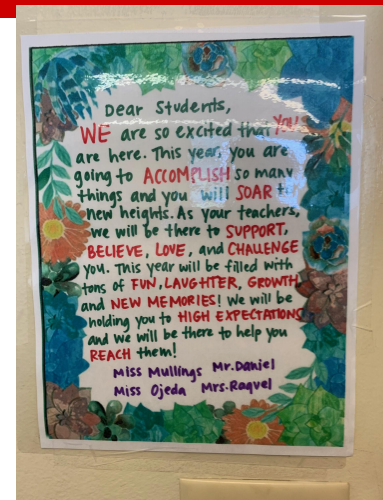 Dear Students,
WE are so excited that YOU
are here. This year, you are
going to ACCOMPLISH so many
things and you will SOAR to
new heights. As your teachers,
we will be there to SUPPORT,
BELIEVE, LOVE, and CHALLENGE
you. This year will be filled with
tons of FUN, LAUGHTER, GROWTH,
and NEW MEMORIES! We will be
holding you to HIGH EXPECTATIONS
and we will be there to help you
REACH them!
Miss Mullings Mr. Daniel
Miss Ojeda Mrs. Raquel